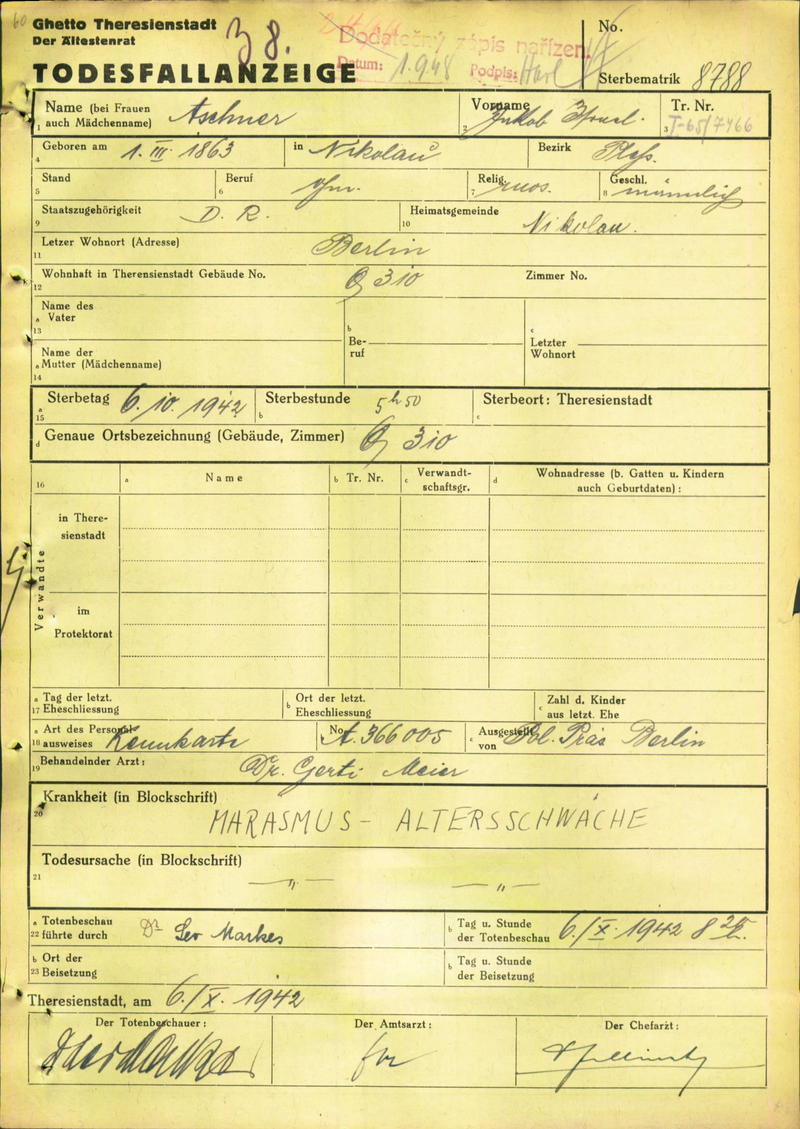 Ghetto Theresienstadt
Der Ältestenrat
38.
Dodatečný zápis nařízen.
Datum: 1.9.48 Podpis:
No.
TODESFALLANZEIGE
Sterbematrik 8788
Name (bei Frauen
1 auch Mädchenname) Aschner
Vorname
2 Jakob Israel.
Tr. Nr.
3 I-65/7466
Geboren am 1. III. 1863
4
in Nikolau
Bezirk Pless.
Stand
5
Beruf
6
Relig.
7 mos.
Geschl.
8 männlich
Staatszugehörigkeit D. R.
9
Heimatsgemeinde
10 Nikolau.
Letzer Wohnort (Adresse) Berlin
11
Wohnhaft in Therensienstadt Gebäude No. Q 310
12
Zimmer No.
Name des
a Vater
13
b
Be-
ruf
c
Letzter
Wohnort
Name der
a Mutter (Mädchenname)
14
a Sterbetag 6. 10. 1942
15
Sterbestunde 5h 50
b
Sterbeort: Theresienstadt
c
d Genaue Ortsbezeichnung (Gebäude, Zimmer) Q 310
16
a Name
b Tr. Nr.
c Verwandt-
schaftsgr.
d Wohnadresse (b. Gatten u. Kindern
auch Geburtdaten) :
Verwandte
in There-
sienstadt
im
Protektorat
a Tag der letzt.
17 Eheschliessung
b Ort der letzt.
Eheschliessung
c Zahl d. Kinder
aus letzt. Ehe
a Art des Personal-
18 ausweises Kennkarte
b No. A. 366005
c Ausgestellt
von Pol. Präs Berlin
Behandelnder Arzt: Dr. Gerti Meier
19
Krankheit (in Blockschrift)
20
MARASMUS - ALTERSSCHWÄCHE
Todesursache (in Blockschrift)
21
—"— —"—
a Totenbeschau
22 führte durch Dr Leo Markes
b Tag u. Stunde
der Totenbeschau 6./X. 1942
b Ort der
23 Beisetzung
b Tag u. Stunde
der Beisetzung
Theresienstadt, am 6./X. 1942
Der Totenbeschauer:
Der Amtsarzt:
Der Chefarzt: